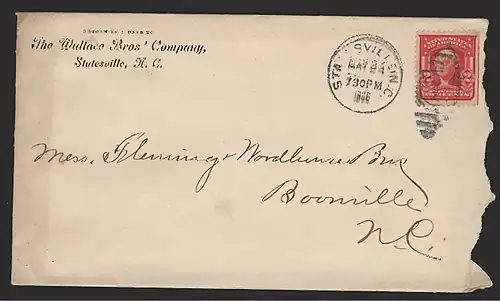 The Wallace Bros' Company,
Statesville, N. C.
STATESVILLE, N.C.
MAY 24
730PM
2 2
Mess. Fleming & Woodhouse Bus
Boonville
N.C.